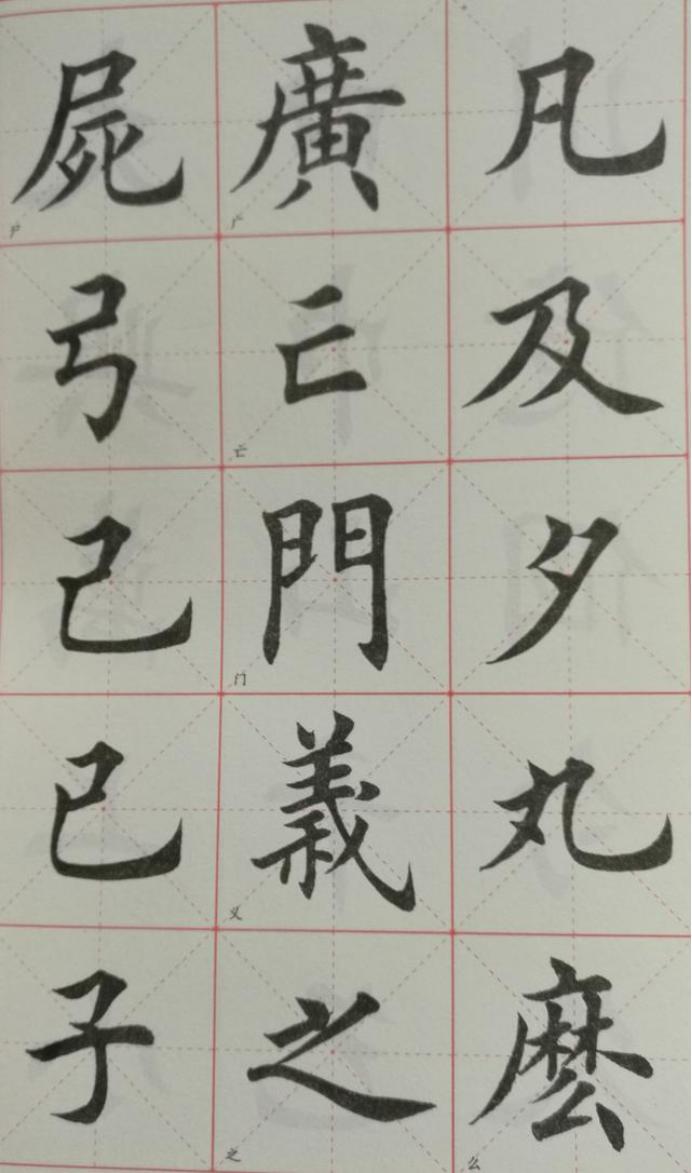 凡
及
夕
丸
麼
么
廣
广
亡
亡
門
门
義
义
之
之
屍
尸
弓
己
已
子